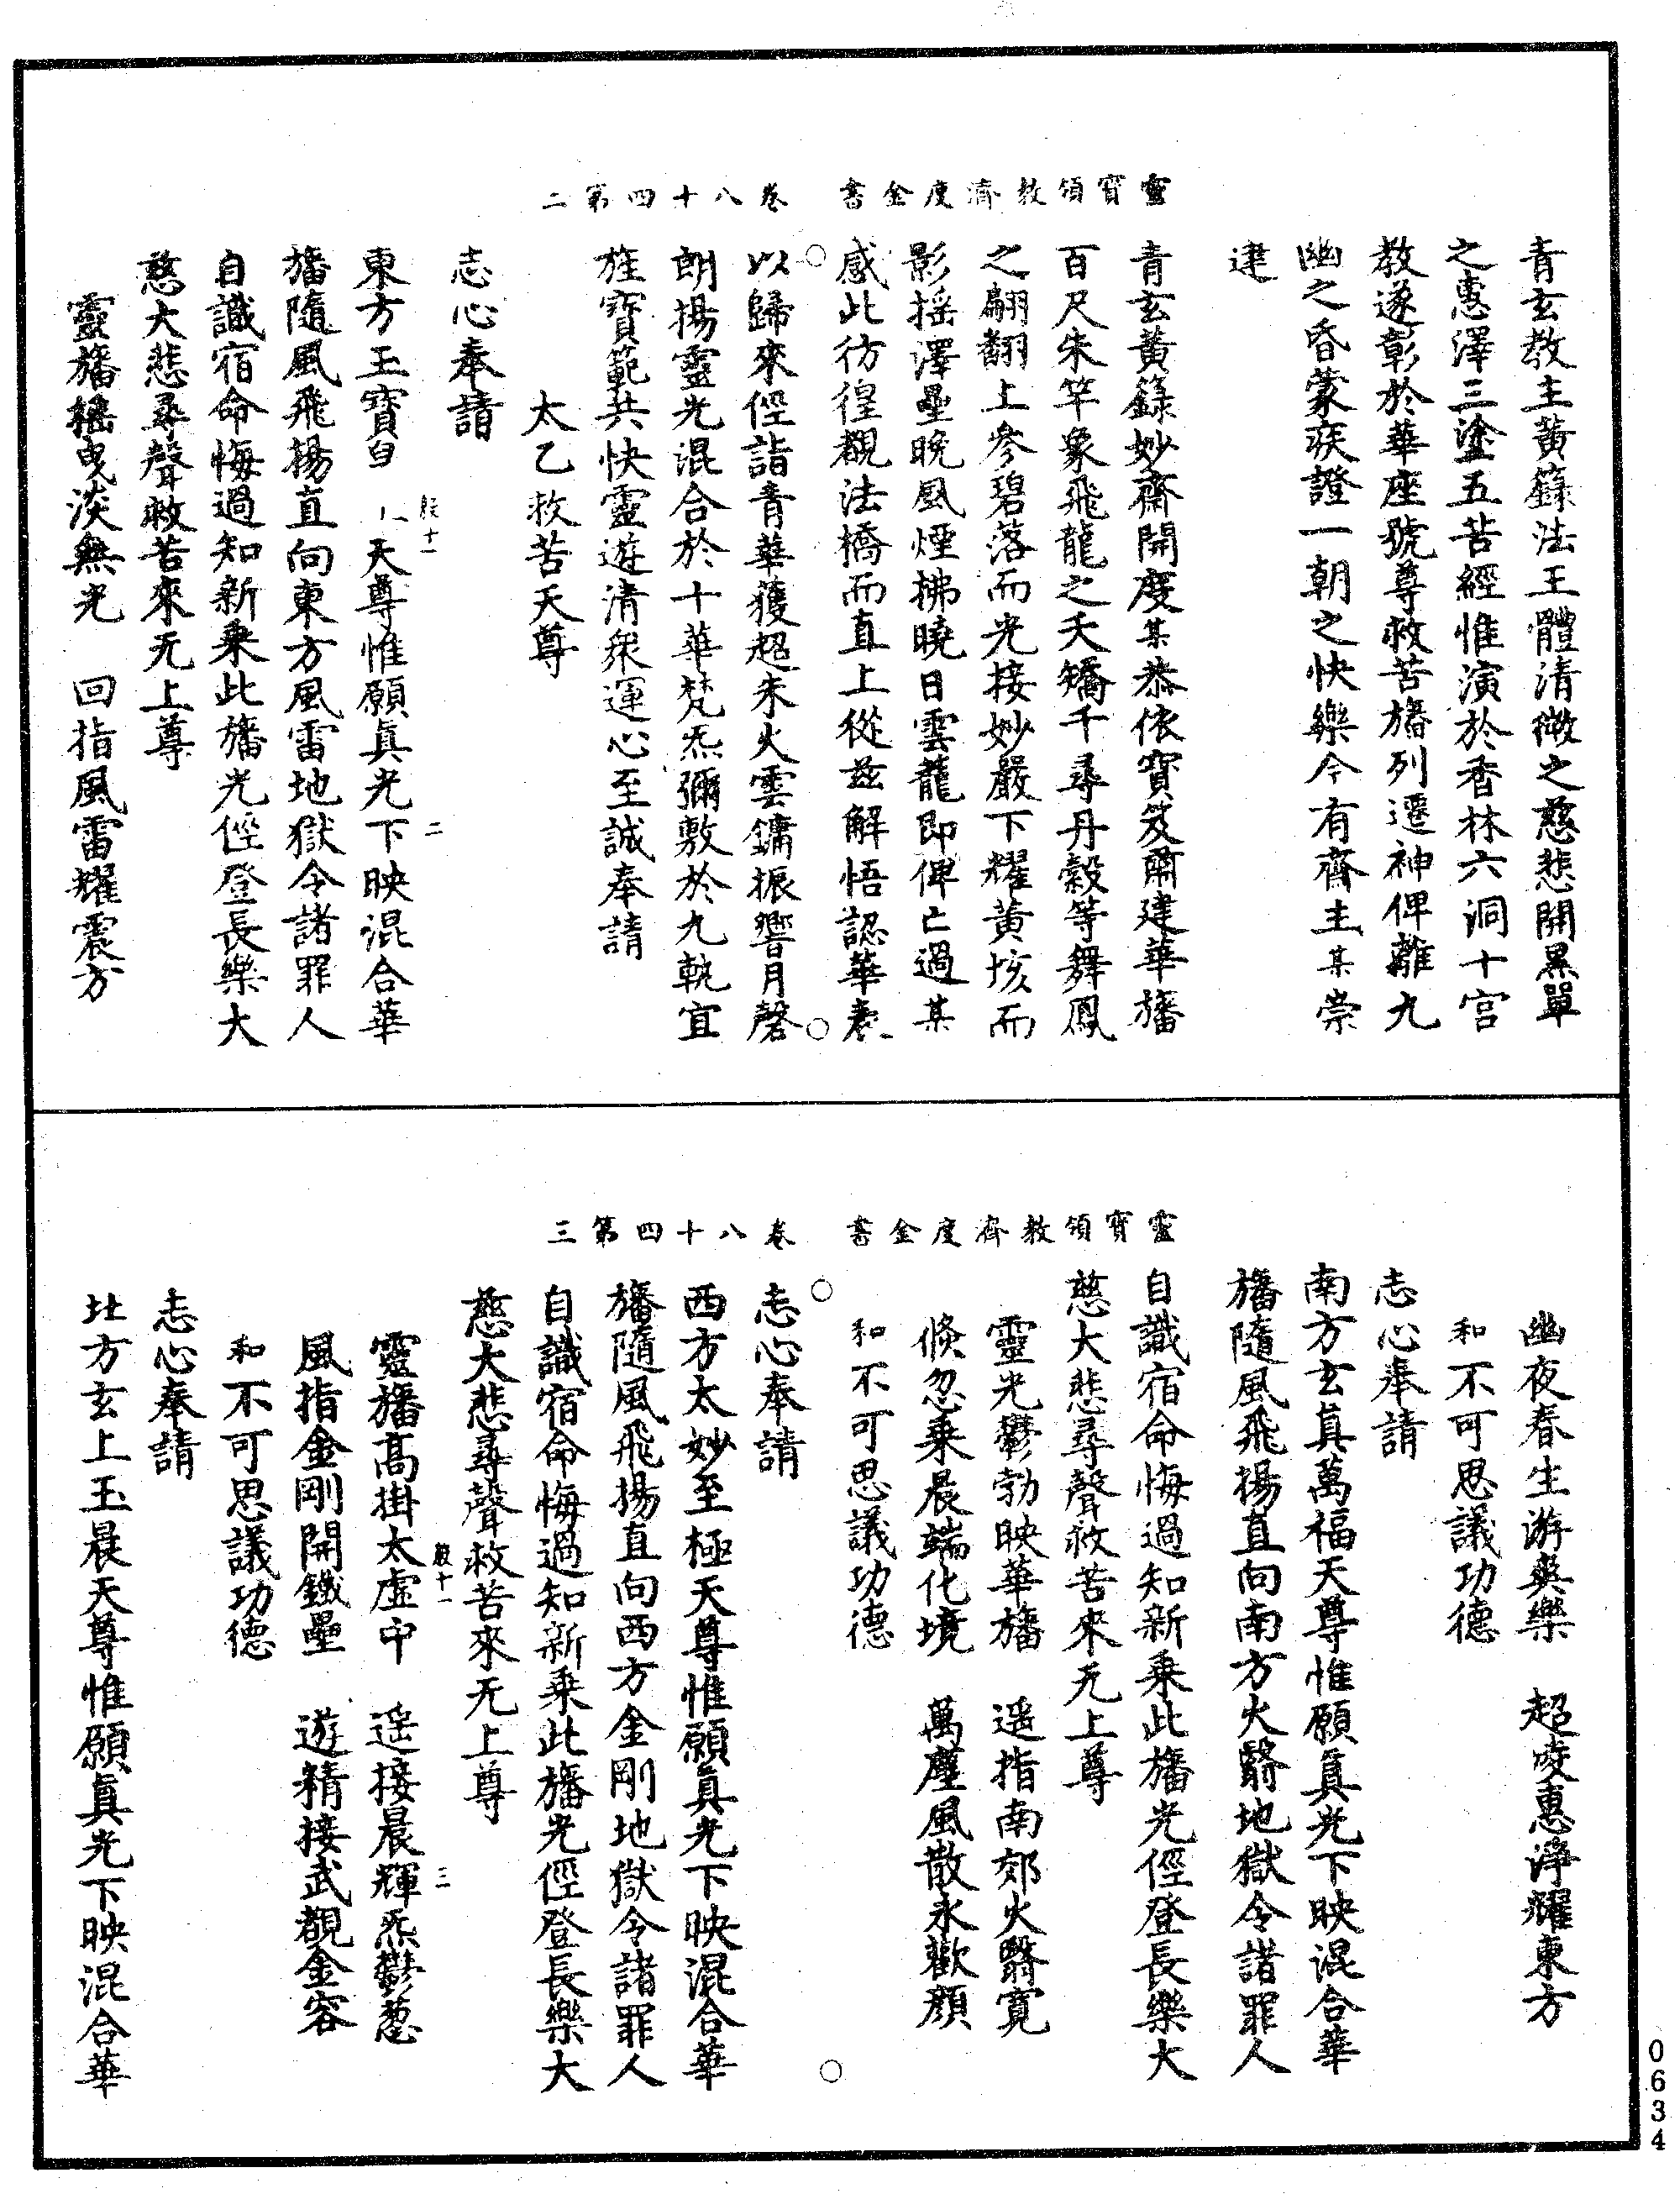 靈寶領教濟度金書 卷八十四第二
青玄教主黃籙法王體清微之慈悲開黑單
之惠澤三塗五苦經惟演於香林六洞十宮
教遂彰於華座號尊救苦旛列遷神俾離九
幽之昏蒙疾證一朝之快樂今有齋主某崇
建
青玄黃籙妙齋開度某恭依寶笈肅建華旛
百尺朱竿象飛龍之夭矯千尋丹縠等舞鳳
之翩翻上參碧落而光接妙嚴下耀黃垓而
影搖澤壘晚風煙拂曉日雲龍即俾亡過某
感此彷徨覩法橋而直上從茲解悟認華表
以歸來徑詣青華獲超朱火雲鏞振響月磬
朗揚靈光混合於十華梵炁彌敷於九軌宜
旌寶範共快靈遊清衆運心至誠奉請
太乙救苦天尊
志心奉請
東方玉寶皇上天尊惟願眞光下映混合華
旛隨風飛揚直向東方風雷地獄令諸罪人
自識宿命悔過知新乘此旛光徑登長樂大
慈大悲尋聲救苦來无上尊
靈旛搖曳淡無光 回指風雷耀震方
靈寶領教濟度金書 卷八十四第三
幽夜春生游爽樂 超咬惠淨耀東方
和不可思議功德
志心奉請
南方玄真萬福天尊惟願眞光下映混合華
旛隨風飛揚直向南方火翳地獄令諸罪人
自識宿命悔過知新乘此旛光徑登長樂大
慈大悲尋聲救苦來无上尊
靈光鬱勃映華旛 遥指南郊火翳寬
倏忽乘晨端化境 萬塵風散永歡顔
和不可思議功德
志心奉請
西方太妙至極天尊惟願眞光下映混合華
旛隨風飛揚直向西方金剛地獄令諸罪人
自識宿命悔過知新乘此旛光徑登長樂大
慈大悲尋聲救苦來无上尊
靈旛高掛太虛中 遥接晨輝炁鬱葱
風指金剛開鐵壘 遊精接武覩金容
和不可思議功德
志心奉請
北方玄上玉晨天尊惟願眞光下映混合華
0634